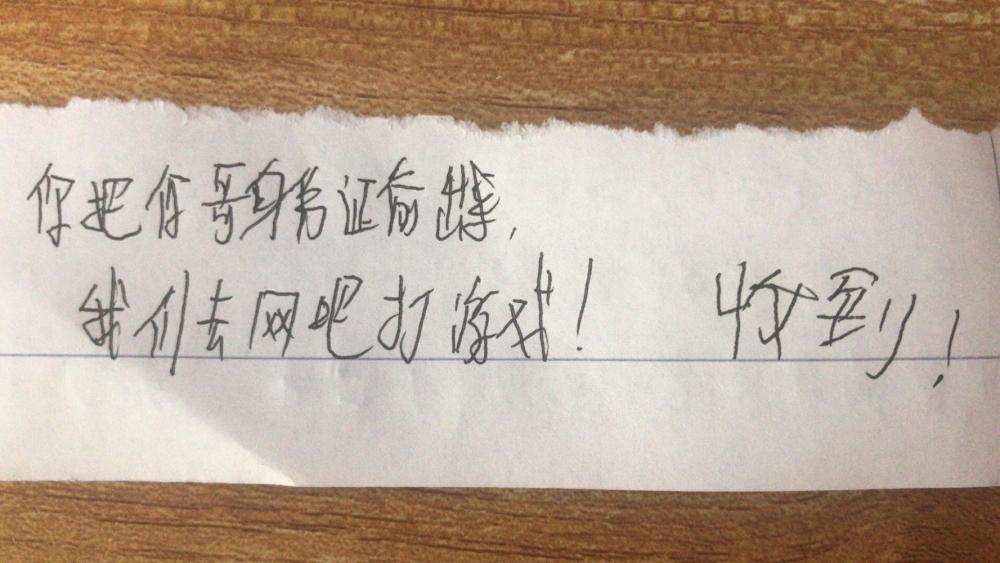 你把你哥身份证偷出来,
我们去网吧打游戏! 收到!